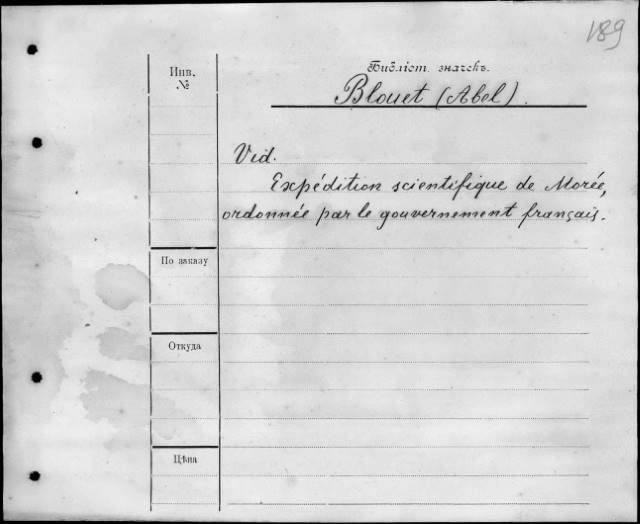 189
Инв.
№
Библіот. значекъ.
Blouet (Abel).
Vid.
Expédition scientifique de Morée,
ordonnée par le gouvernement français.
По заказу
Откуда
Цѣна